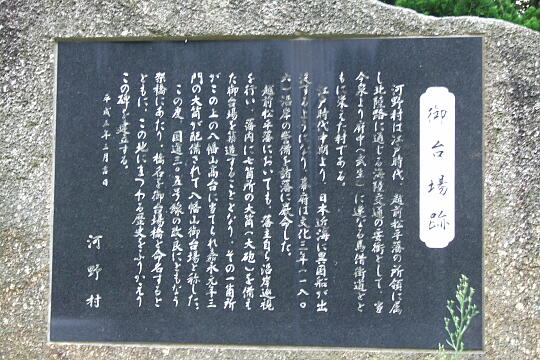 御台場跡
河野村は江戸時代、越前松平藩の所領に属
し北陸路に通じる海陸交通の要衝として、ま
今泉より府中(武生)に連なる馬借街道とと
もに栄えた村である。
江戸時代末期より、日本近海に異国船が出
没するようになり、幕府は文化三年(一八〇
六)沿岸の警備を諸藩に厳命した。
越前松平藩においても、藩主自ら沿岸巡視
を行い、藩内に七箇所の大筒(大砲)を備え
た御台場を築造することとなり、その一箇所
がこの上の八幡山高台に当てられ嘉永元年三
門の大筒が配備されて八幡山御台場と称した。
この度、国道三〇五号線の改良にともなう
架橋にあたり、橋名を御台場橋と命名すると
ともに、この地にまつわる歴史をふりかえり
この碑を建立する。
平成三年三月吉日
河野村